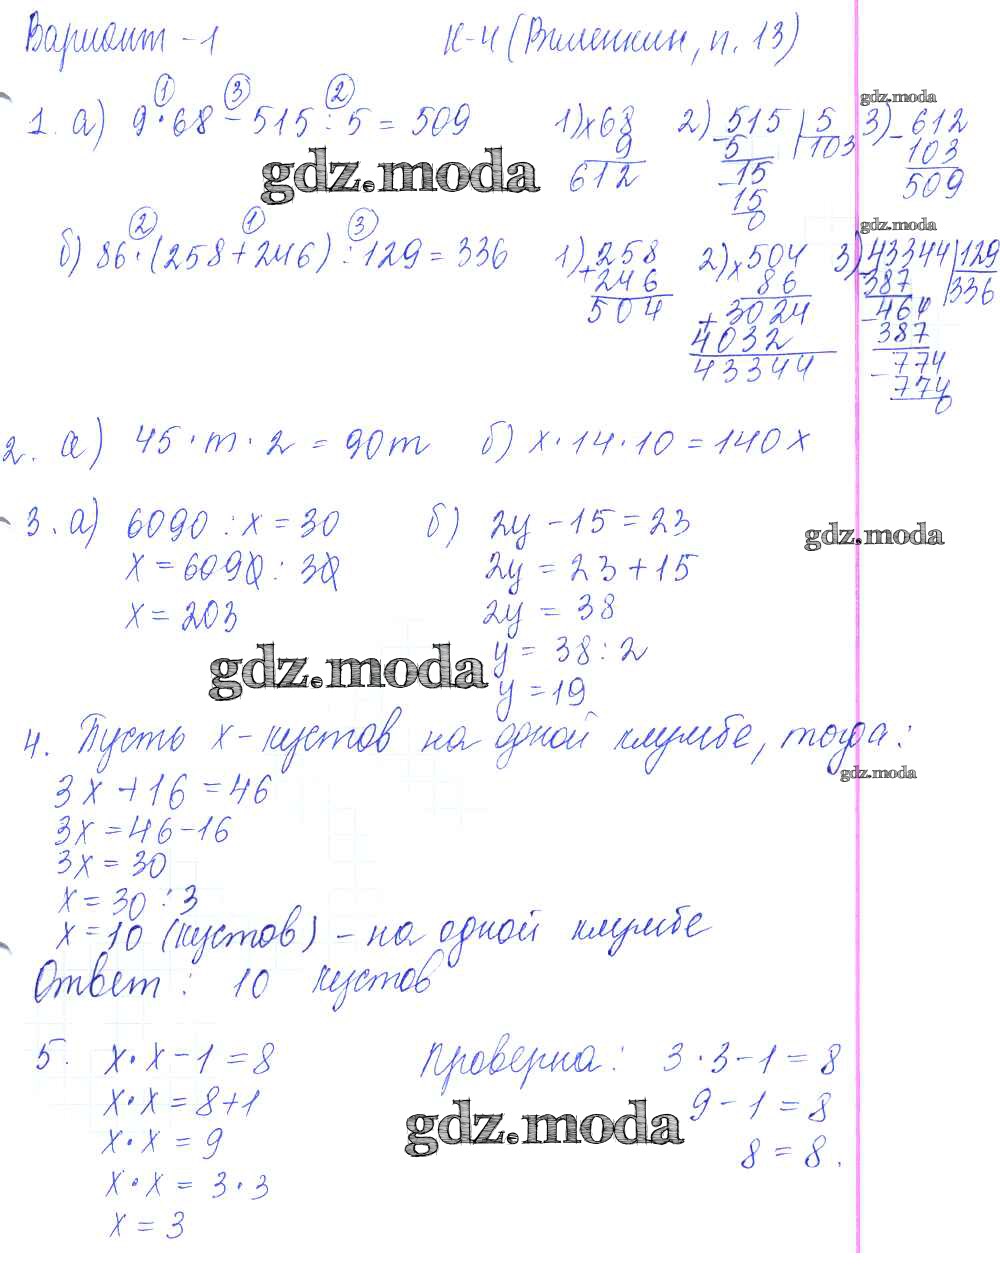 Вариант - 1 К-4 (Виленкин, п. 13)
1. а) 9 · 68 - 515 : 5 = 509
① ③ ②
1) × 68
9
612
2) - 515 | 5
5 | 103
- 15
15
0
3) - 612
103
509
gdz.moda
gdz.moda
б) 86 · (258 + 246) : 129 = 336
② ① ③
1) + 258
246
504
2) × 504
86
+ 3024
4032
43344
3) - 43344 | 129
387 | 336
- 464
387
- 774
774
0
gdz.moda
2. а) 45 · m · 2 = 90m б) x · 14 · 10 = 140x
3. а) 6090 : x = 30
x = 6090 : 30
x = 203
б) 2y - 15 = 23
2y = 23 + 15
2y = 38
y = 38 : 2
y = 19
gdz.moda
gdz.moda
4. Пусть x - кустов на одной клумбе, тогда:
gdz.moda
3x + 16 = 46
3x = 46 - 16
3x = 30
x = 30 : 3
x = 10 (кустов) - на одной клумбе
Ответ: 10 кустов
5. x · x - 1 = 8
x · x = 8 + 1
x · x = 9
x · x = 3 · 3
x = 3
Проверка: 3 · 3 - 1 = 8
9 - 1 = 8
8 = 8.
gdz.moda